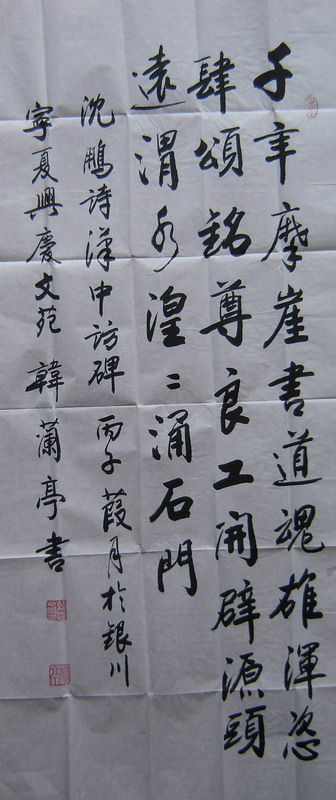 千年摩崖書道魂雄渾恣
肆頌銘尊良工開辟源頭
遠渭水湟〻涌石門
沈鵬詩漢中訪碑 丙子葭月於銀川
寧夏興慶文苑 韓蘭亭書